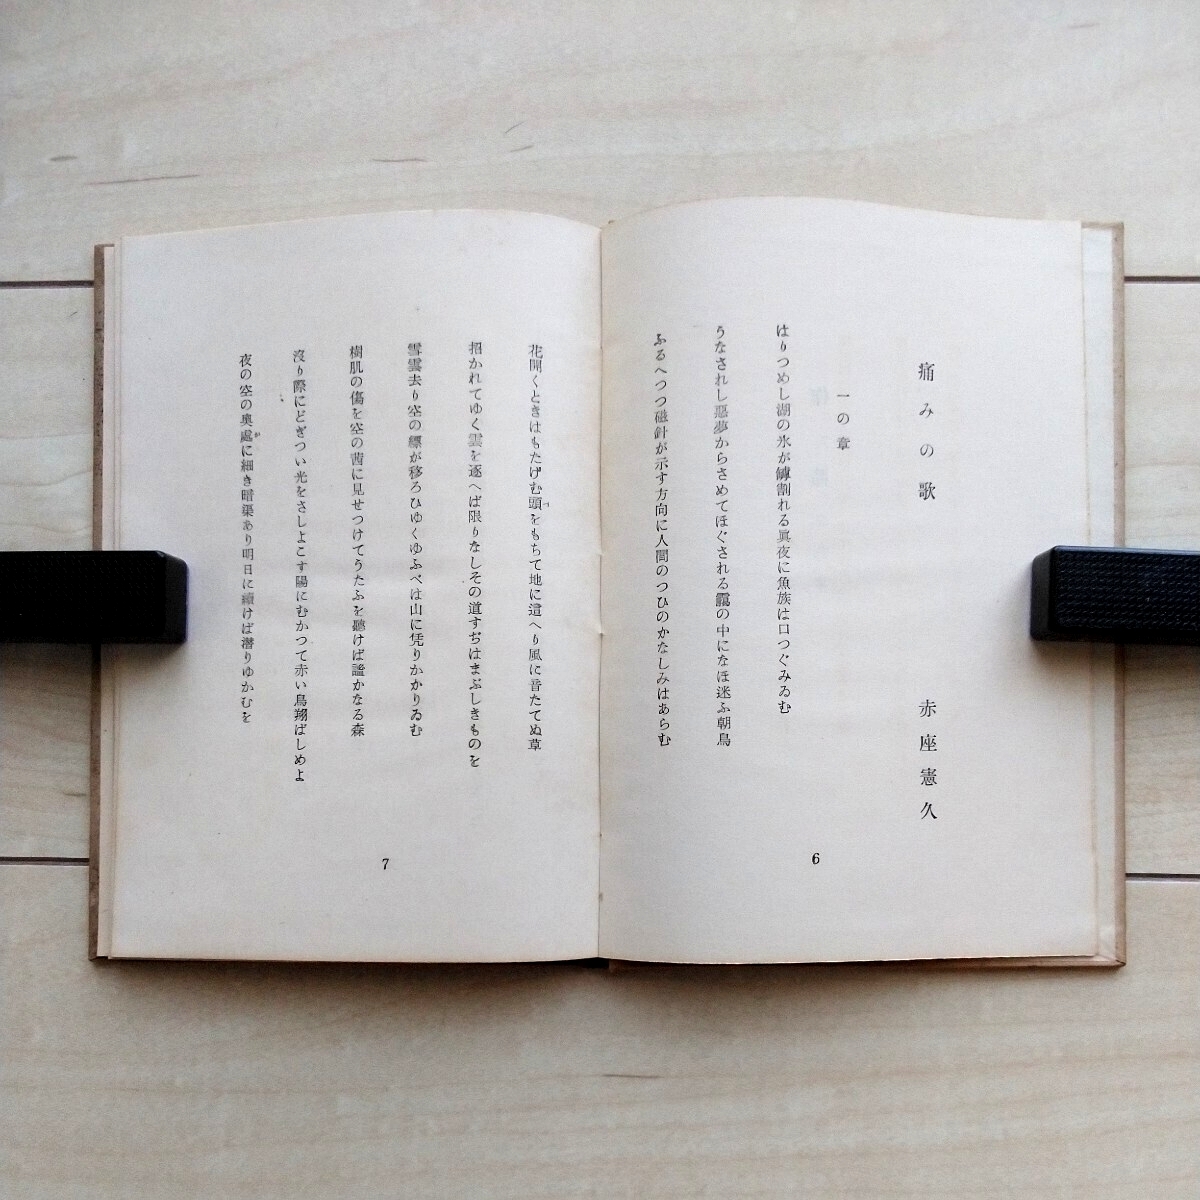 痛みの歌
赤座憲久
一の章
はりつめし湖の氷が罅割れる眞夜に魚族は口つぐみゐむ
うなされし惡夢からさめてほぐされる靄の中になほ迷ふ朝鳥
ふるへつつ磁針が示す方向に人間のつひのかなしみはあらむ
6
花開くときはもたげむ頭をもちて地に這へり風に音たてぬ草
招かれてゆく雲を逐へば限りなしその道すぢはまぶしきものを
雪雲去り空の縹が移ろひゆくゆふべは山に凭りかかりゐむ
樹肌の傷を空の茜に見せつけてうたふを聽けば謐かなる森
沒り際にどぎつい光をさしよこす陽にむかつて赤い鳥翔ばしめよ
夜の空の奥處に細き暗渠あり明日に續けば潛りゆかむを
7